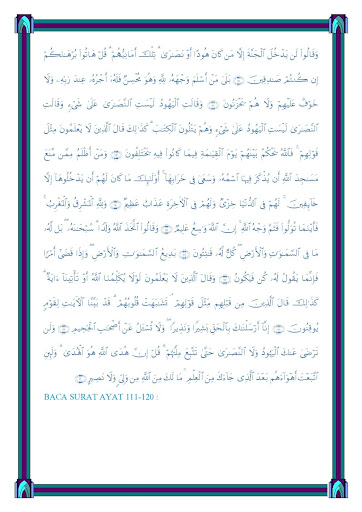 وَقَالُوا۟ لَن يَدْخُلَ ٱلْجَنَّةَ إِلَّا مَن كَانَ هُودًا أَوْ نَصَـٰرَىٰ ۗ تِلْكَ أَمَانِيُّهُمْ ۗ قُلْ هَاتُوا۟ بُرْهَـٰنَكُمْ
إِن كُنتُمْ صَـٰدِقِينَ ﴿١١١﴾ بَلَىٰ مَنْ أَسْلَمَ وَجْهَهُۥ لِلَّهِ وَهُوَ مُحْسِنٌ فَلَهُۥٓ أَجْرُهُۥ عِندَ رَبِّهِۦ وَلَا
خَوْفٌ عَلَيْهِمْ وَلَا هُمْ يَحْزَنُونَ ﴿١١٢﴾ وَقَالَتِ ٱلْيَهُودُ لَيْسَتِ ٱلنَّصَـٰرَىٰ عَلَىٰ شَىْءٍ وَقَالَتِ
ٱلنَّصَـٰرَىٰ لَيْسَتِ ٱلْيَهُودُ عَلَىٰ شَىْءٍ وَهُمْ يَتْلُونَ ٱلْكِتَـٰبَ ۗ كَذَٰلِكَ قَالَ ٱلَّذِينَ لَا يَعْلَمُونَ مِثْلَ
قَوْلِهِمْ ۚ فَٱللَّهُ يَحْكُمُ بَيْنَهُمْ يَوْمَ ٱلْقِيَـٰمَةِ فِيمَا كَانُوا۟ فِيهِ يَخْتَلِفُونَ ﴿١١٣﴾ وَمَنْ أَظْلَمُ مِمَّن مَّنَعَ
مَسَـٰجِدَ ٱللَّهِ أَن يُذْكَرَ فِيهَا ٱسْمُهُۥ وَسَعَىٰ فِى خَرَابِهَآ ۚ أُو۟لَـٰٓئِكَ مَا كَانَ لَهُمْ أَن يَدْخُلُوهَآ إِلَّا
خَآئِفِينَ ۚ لَهُمْ فِى ٱلدُّنْيَا خِزْىٌ وَلَهُمْ فِى ٱلْـَٔاخِرَةِ عَذَابٌ عَظِيمٌ ﴿١١٤﴾ وَلِلَّهِ ٱلْمَشْرِقُ وَٱلْمَغْرِبُ ۚ
فَأَيْنَمَا تُوَلُّوا۟ فَثَمَّ وَجْهُ ٱللَّهِ ۚ إِنَّ ٱللَّهَ وَٰسِعٌ عَلِيمٌ ﴿١١٥﴾ وَقَالُوا۟ ٱتَّخَذَ ٱللَّهُ وَلَدًا ۗ سُبْحَـٰنَهُۥ ۖ بَل لَّهُۥ
مَا فِى ٱلسَّمَـٰوَٰتِ وَٱلْأَرْضِ ۖ كُلٌّ لَّهُۥ قَـٰنِتُونَ ﴿١١٦﴾ بَدِيعُ ٱلسَّمَـٰوَٰتِ وَٱلْأَرْضِ ۖ وَإِذَا قَضَىٰٓ أَمْرًا
فَإِنَّمَا يَقُولُ لَهُۥ كُن فَيَكُونُ ﴿١١٧﴾ وَقَالَ ٱلَّذِينَ لَا يَعْلَمُونَ لَوْلَا يُكَلِّمُنَا ٱللَّهُ أَوْ تَأْتِينَآ ءَايَةٌ ۗ
كَذَٰلِكَ قَالَ ٱلَّذِينَ مِن قَبْلِهِم مِّثْلَ قَوْلِهِمْ ۘ تَشَـٰبَهَتْ قُلُوبُهُمْ ۗ قَدْ بَيَّنَّا ٱلْـَٔايَـٰتِ لِقَوْمٍ
يُوقِنُونَ ﴿١١٨﴾ إِنَّآ أَرْسَلْنَـٰكَ بِٱلْحَقِّ بَشِيرًا وَنَذِيرًا ۖ وَلَا تُسْـَٔلُ عَنْ أَصْحَـٰبِ ٱلْجَحِيمِ ﴿١١٩﴾ وَلَن
تَرْضَىٰ عَنكَ ٱلْيَهُودُ وَلَا ٱلنَّصَـٰرَىٰ حَتَّىٰ تَتَّبِعَ مِلَّتَهُمْ ۗ قُلْ إِنَّ هُدَى ٱللَّهِ هُوَ ٱلْهُدَىٰ ۗ وَلَئِنِ
ٱتَّبَعْتَ أَهْوَآءَهُم بَعْدَ ٱلَّذِى جَآءَكَ مِنَ ٱلْعِلْمِ ۙ مَا لَكَ مِنَ ٱللَّهِ مِن وَلِىٍّ وَلَا نَصِيرٍ ﴿١٢٠﴾
BACA SURAT AYAT 111-120 :